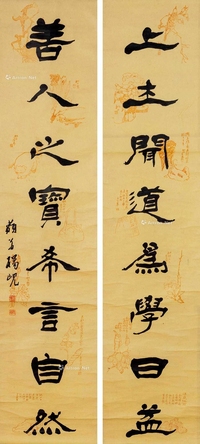 上士聞道為學日益
善人之寶希言自然
藐翁楊峴